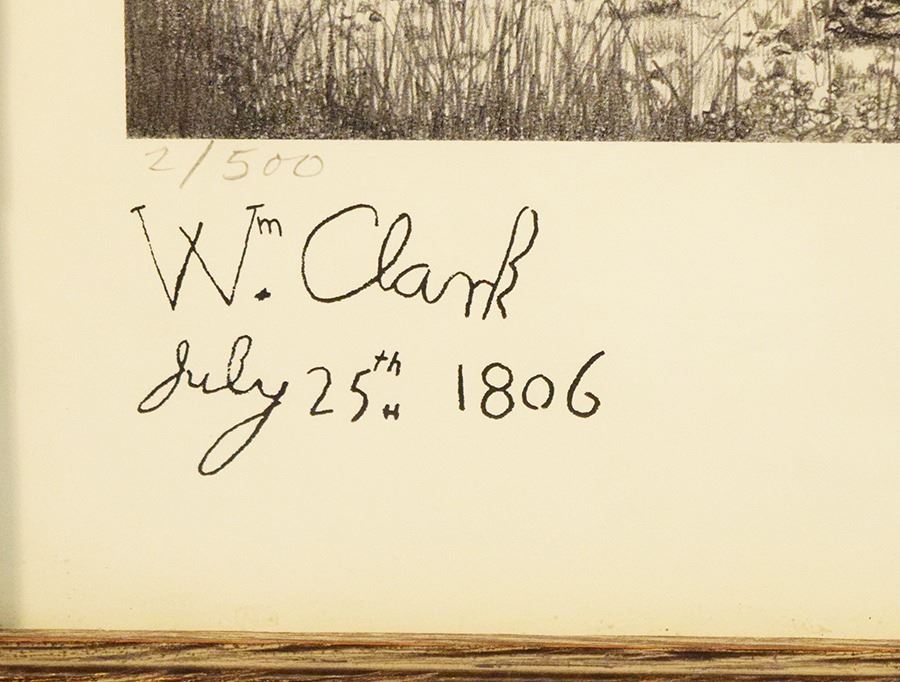 2/500
Wm. Clark
July 25th 1806